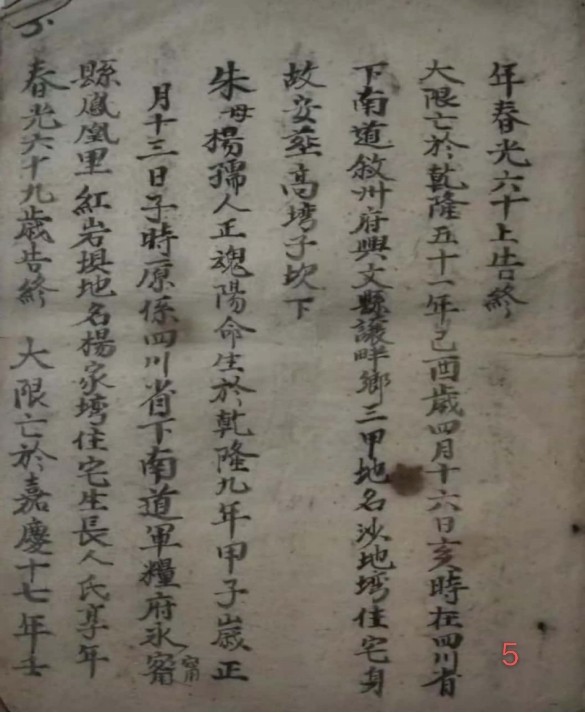 年春光六十上告終
大限亡於乾隆五十一年己酉歲四月十六日亥時在四川省
下南道敘州府興文縣讓畔鄉三甲地名沙地塆住宅身
故安葬高塆子坎下
朱母楊孺人正魂陽命生於乾隆九年甲子歲正
月十三日子時原係四川省下南道軍糧府永甯
縣鳳凰里紅岩埧地名楊家塆住宅生長人氏享年
春光六十九歲告終 大限亡於嘉慶十七年壬
5